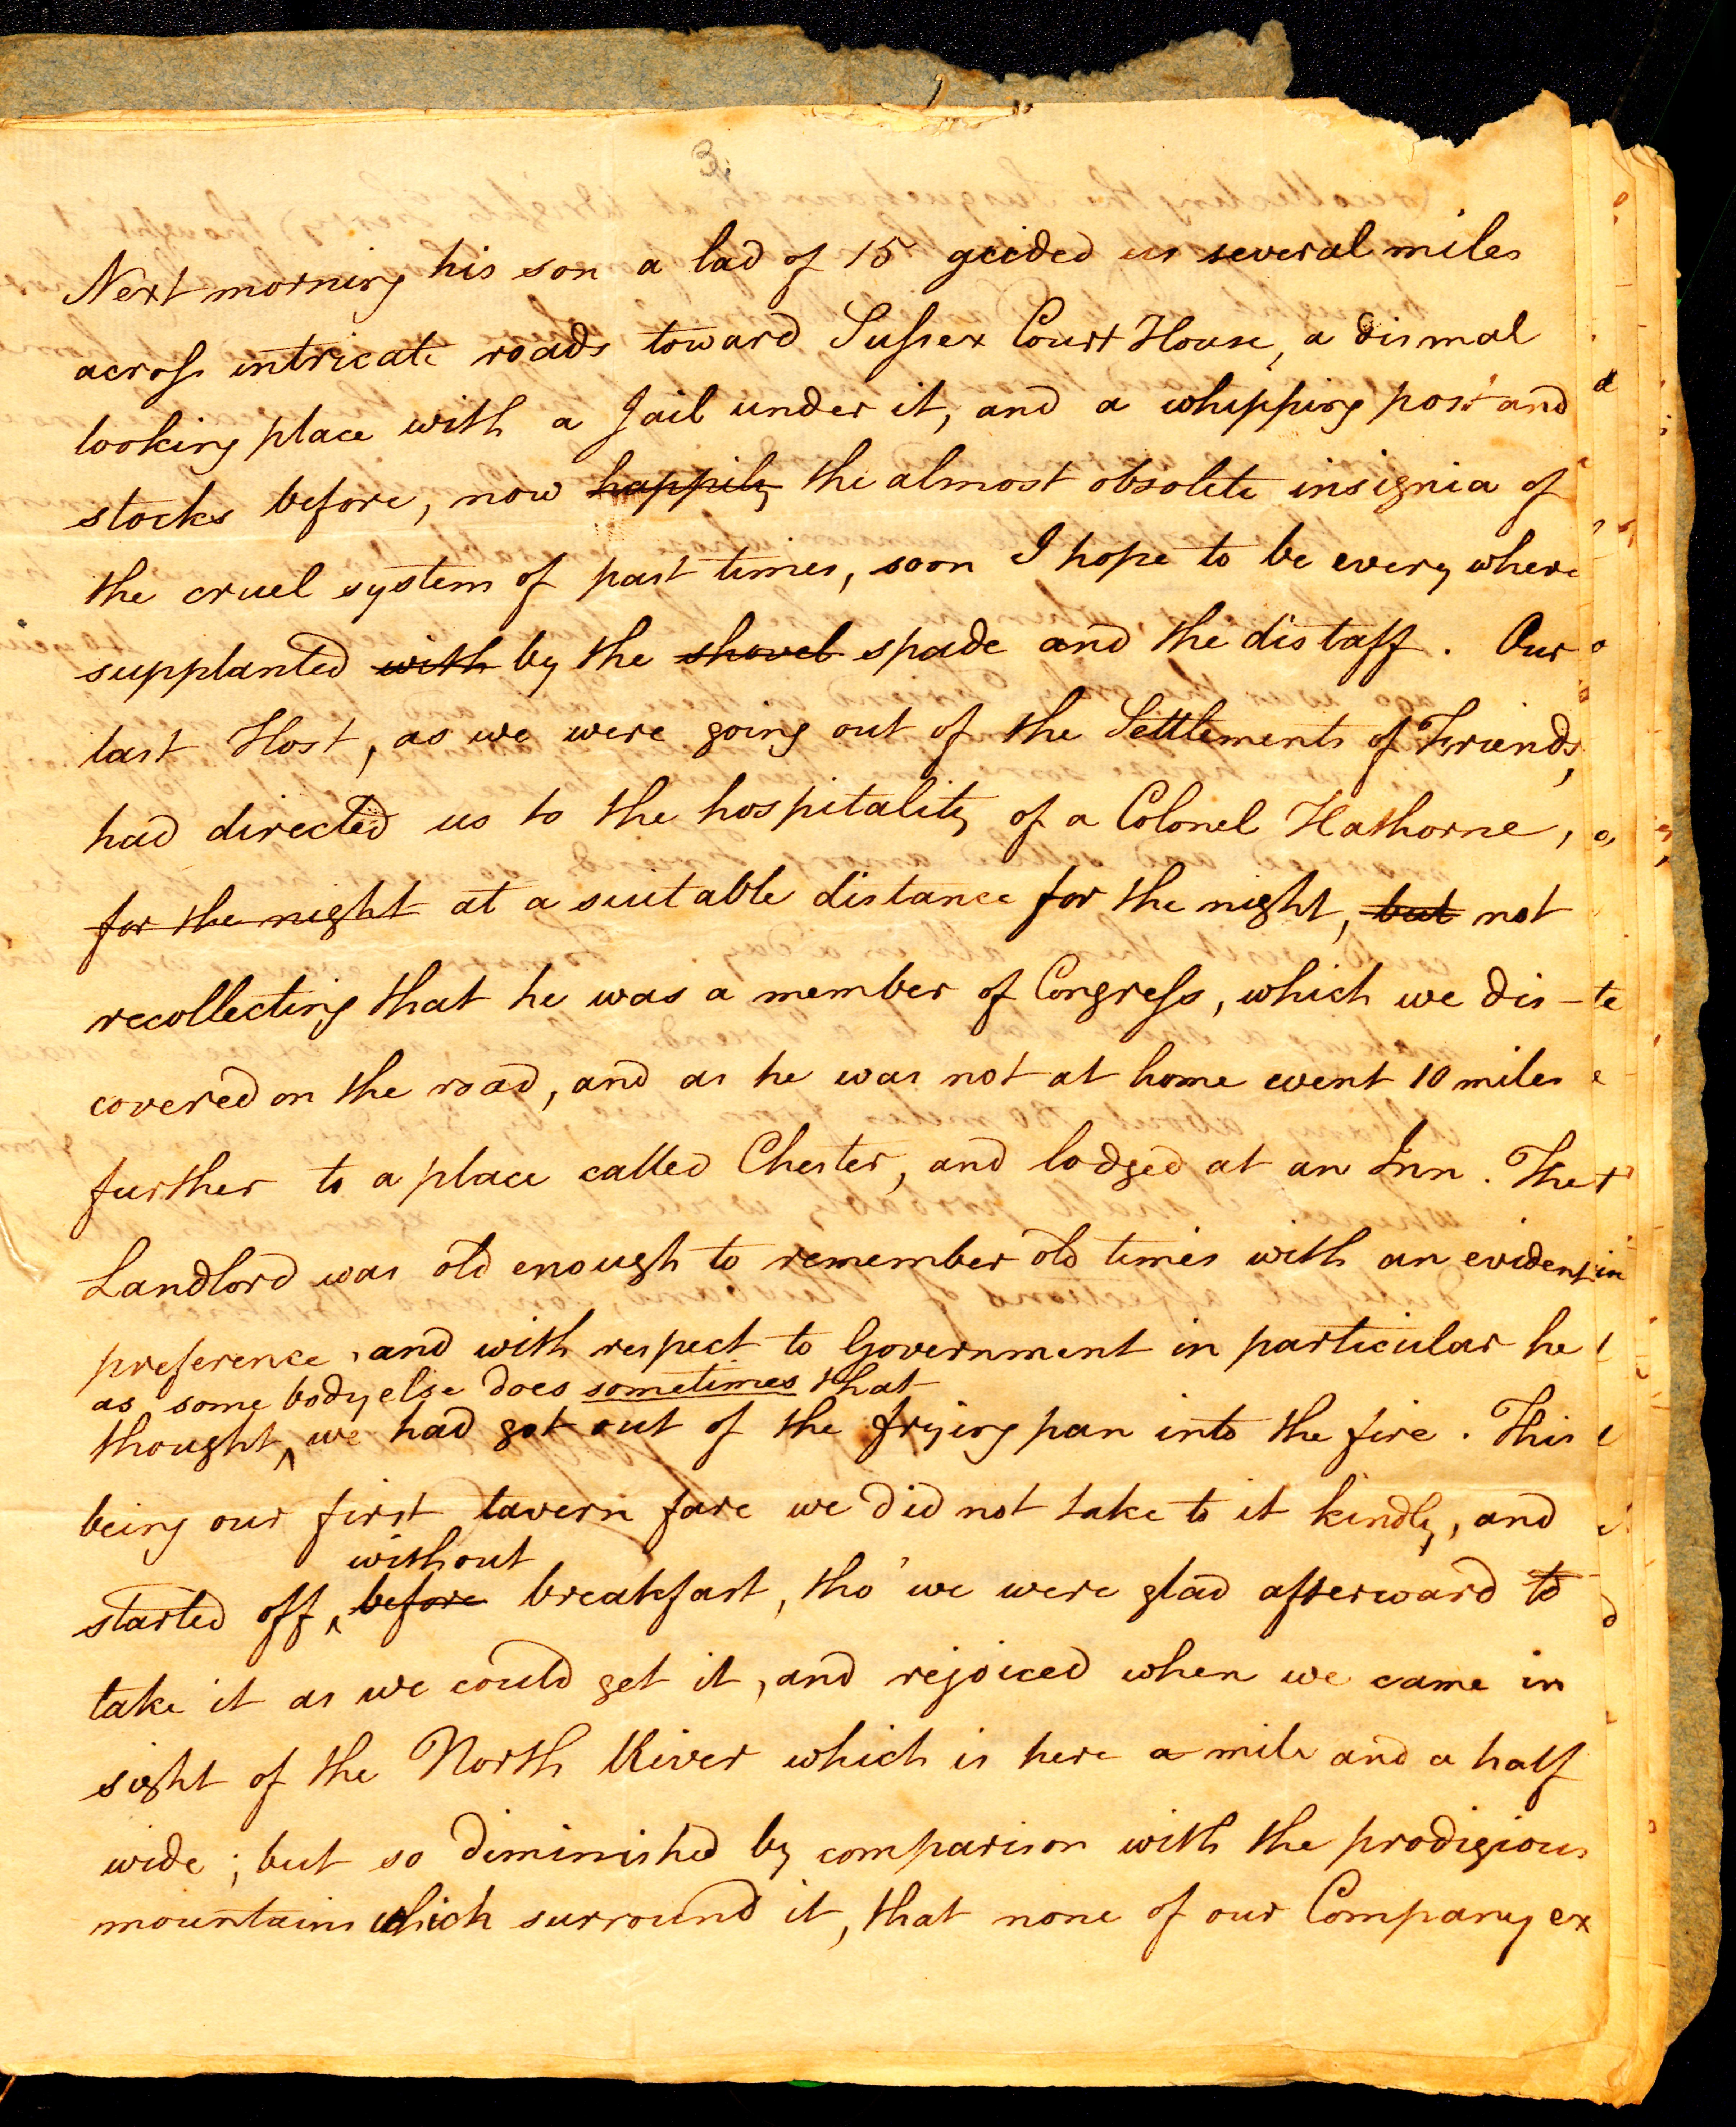 3.
Next morning his son a lad of 15 guided us several miles
across intricate roads toward Sussex Court House, a dismal
looking place with a Jail under it, and a whipping post and
stocks before, now happily the almost obsolete insignia of
the cruel system of past times, soon I hope to be every where
supplanted with by the shovel spade and the distaff. Our
last Host, as we were going out of the Settlements of Friends,
had directed us to the hospitality of a Colonel Hathorne,
for the night at a suitable distance for the night, but not
recollecting that he was a member of Congress, which we dis-
covered on the road, and as he was not at home went 10 miles
further to a place called Chester, and lodged at an Inn. The
Landlord was old enough to remember old times with an evident
preference, and with respect to Government in particular he
as some body else does sometimes that
thought ^ we had got out of the frying pan into the fire. This
being our first tavern fare we did not take to it kindly, and
without
started off ^ before breakfast, tho' we were glad afterward to
take it as we could get it, and rejoiced when we came in
sight of the North River which is here a mile and a half
wide; but so diminished by comparison with the prodigious
mountains which surround it, that none of our Company ex